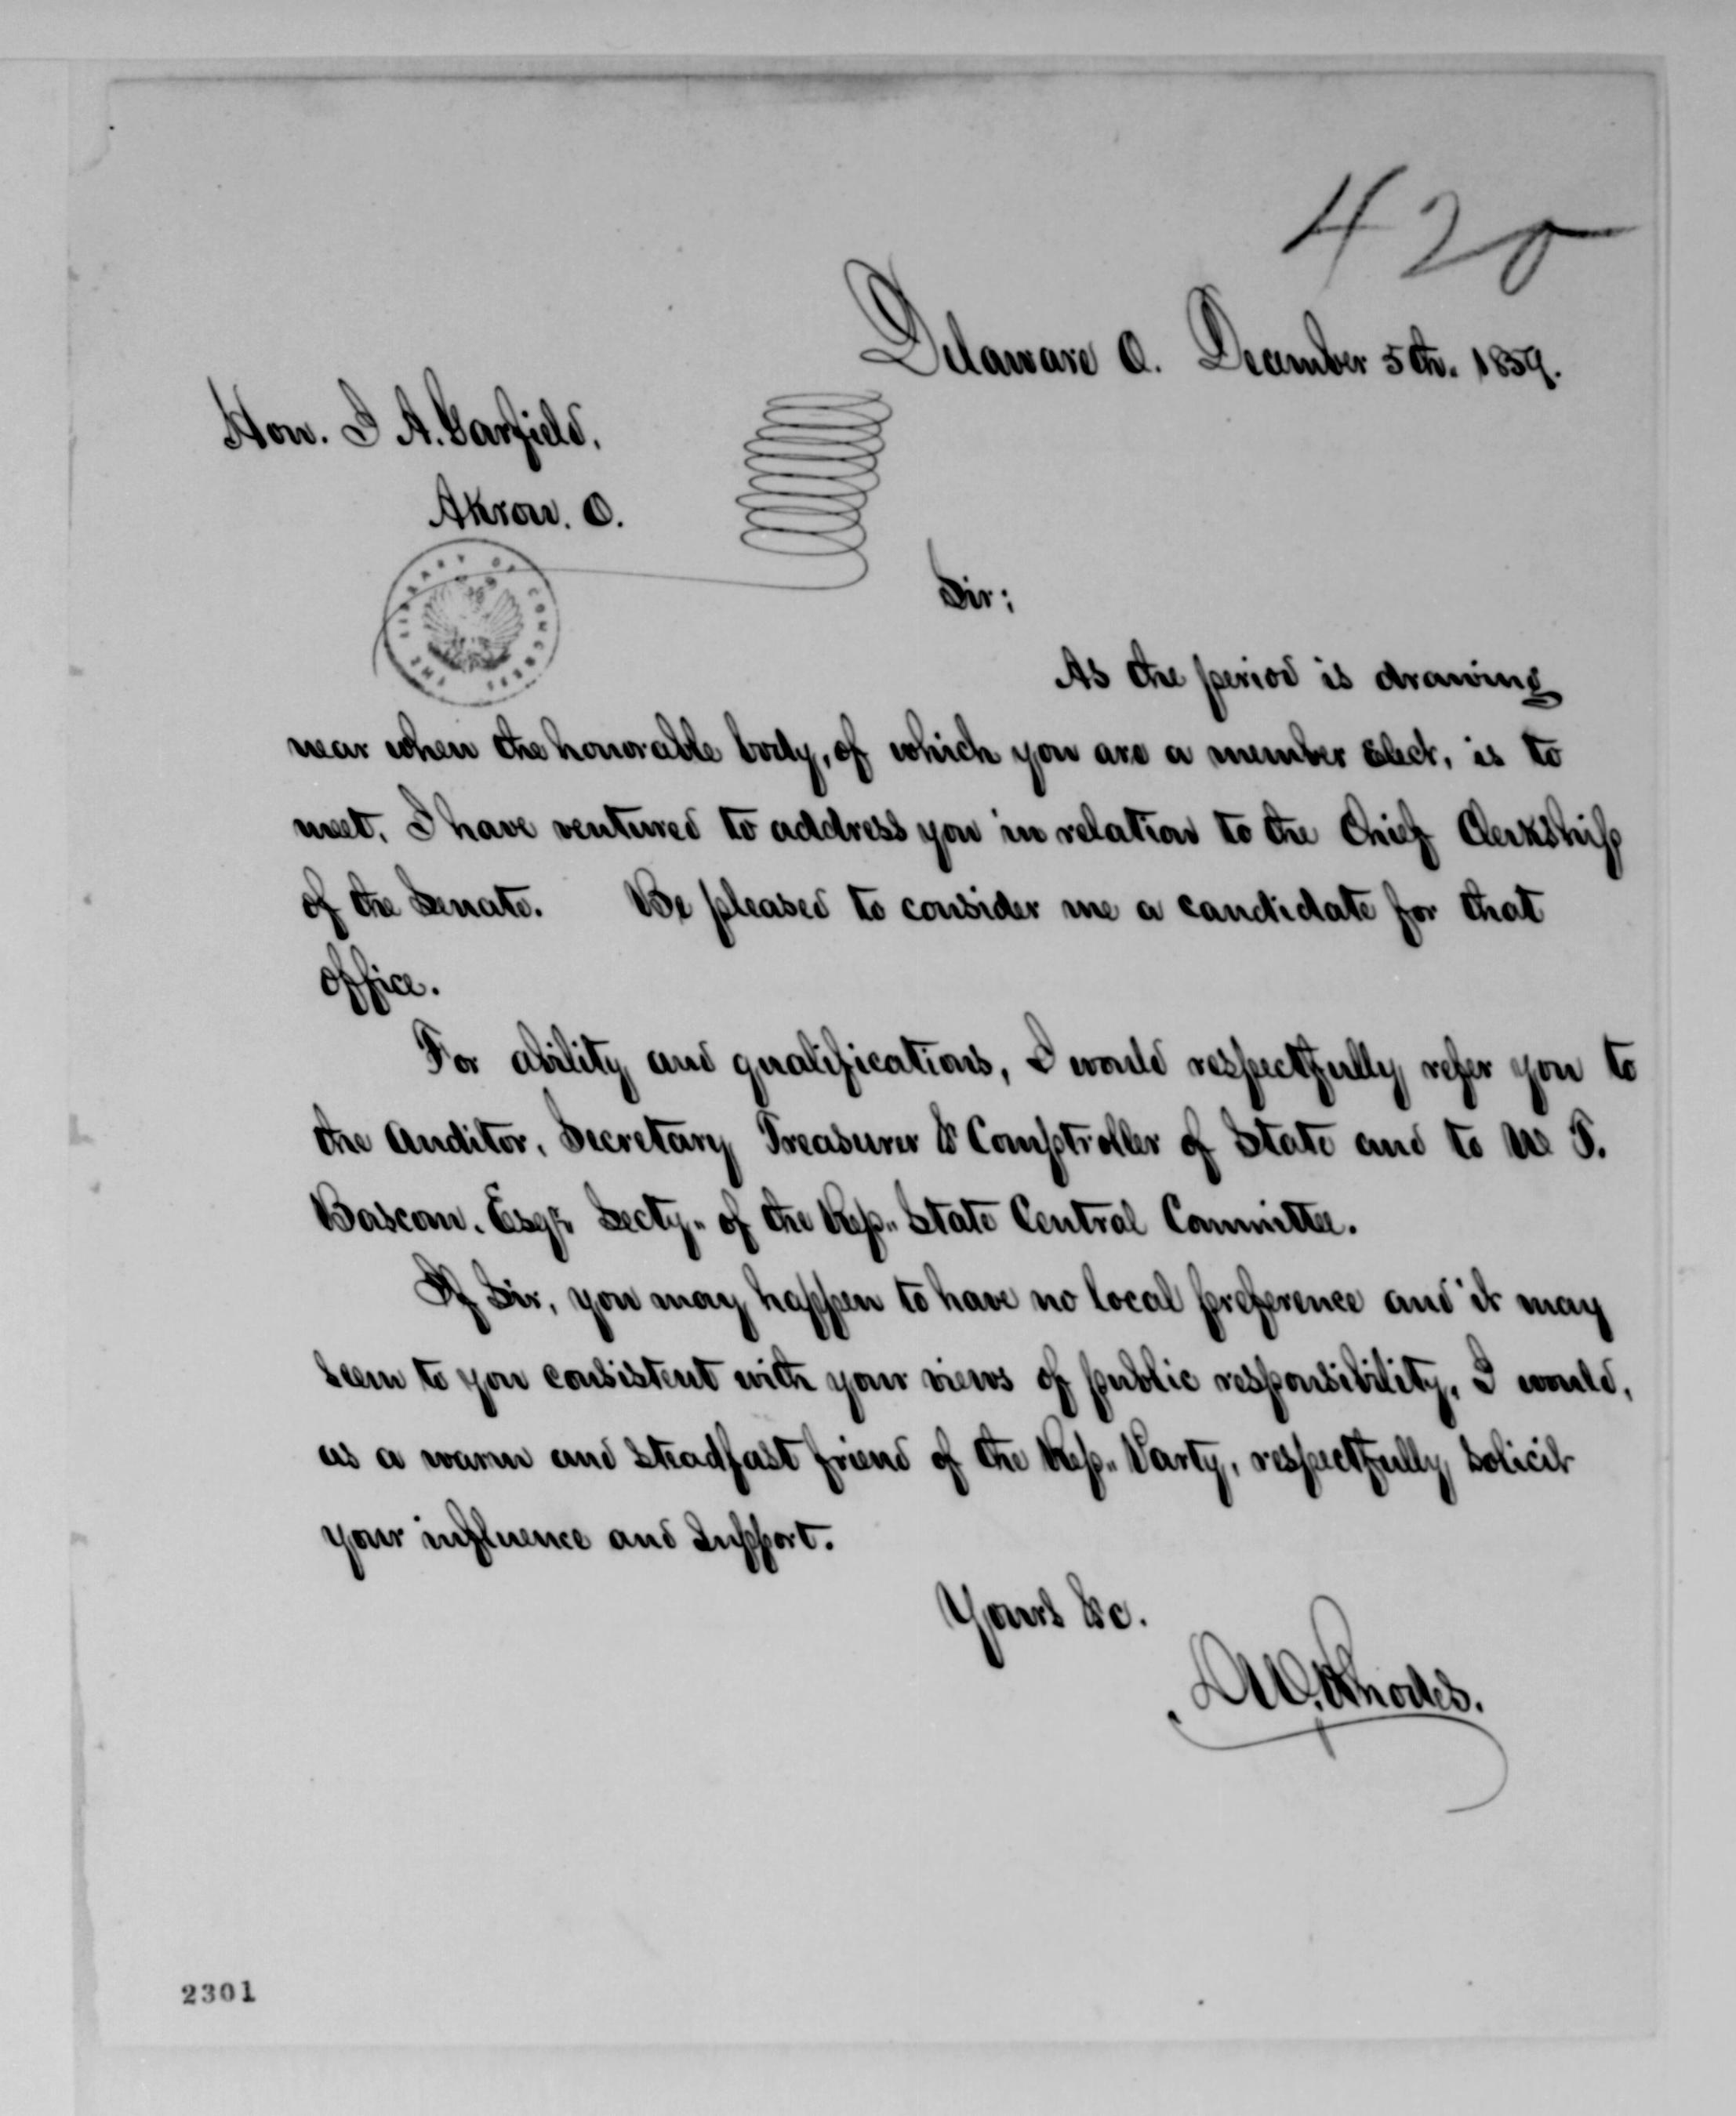 420
Delaware O. December 5th. 1859.
Hon. J A. Garfield,
Akron. O.
THE LIBRARY OF CONGRESS
Sir;
As the period is drawing
near when the honorable body, of which you are a member elect, is to
meet, I have ventured to address you in relation to the Chief Clerkship
of the Senate. Be pleased to consider me a candidate for that
office.
For ability and qualifications, I would respectfully refer you to
the Auditor, Secretary Treasurer & Comptroller of State and to W T.
Bascom. Esqr. Secty. of the Rep. State Central Committee.
If Sir, you may happen to have no local preference and it may
seem to you consistent with your views of public responsibility, I would,
as a warm and steadfast friend of the Rep. Party, respectfully solicit
your influence and support.
Yours &c.
D W. Rhodes.
2301